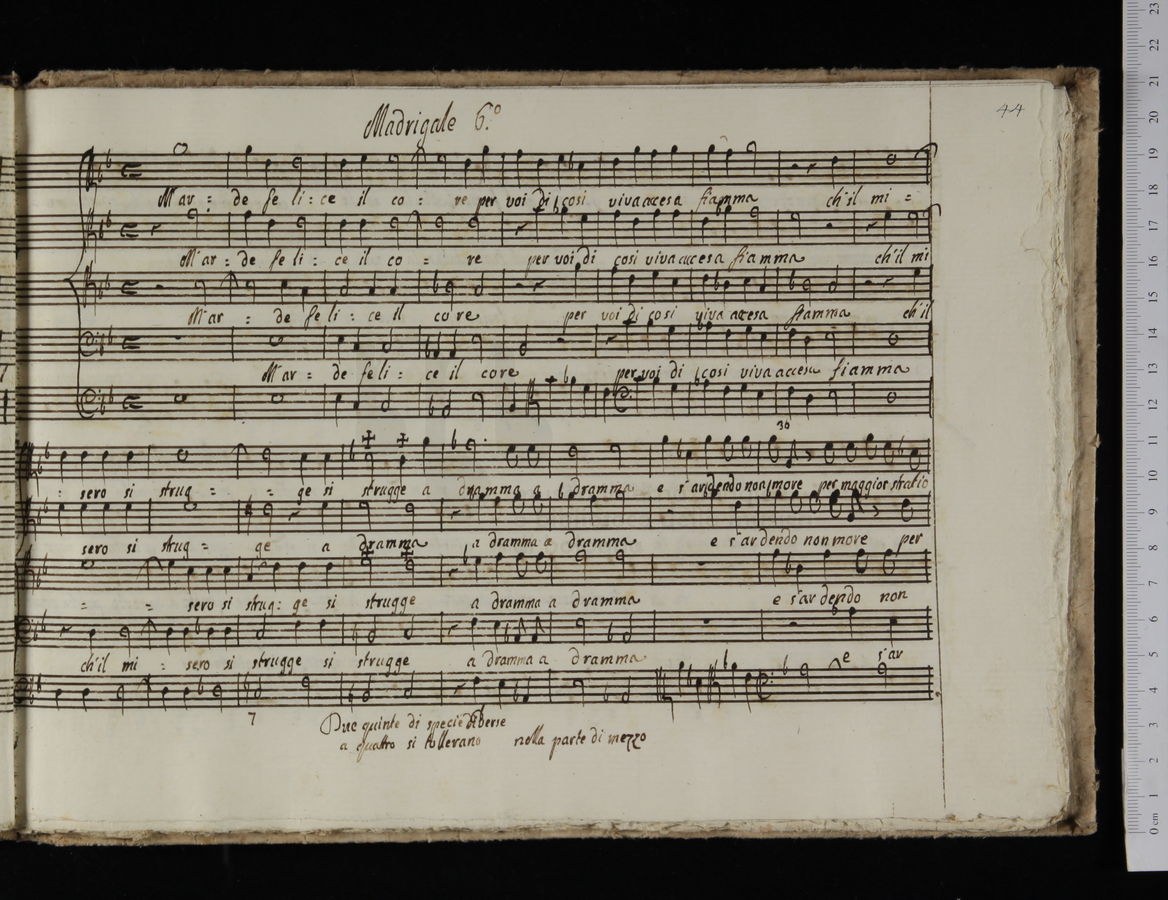 44
Madrigale 6.º
M'ar : de fe li : ce il co : re per voi di cosi viva accesa fiamma ch'il mi =
M'ar : de fe li : ce il co = re per voi di cosi viva accesa fiamma ch'il mi
M'ar : de fe li : ce il core per voi di cosi viva accesa fiamma ch'il
M'ar : de fe li : ce il core per voi di cosi viva accesa fiamma
36
: sero si strug = = ge si strugge a dramma a dramma e s'ardendo non more per maggior stratio
sero si strug = ge a dramma a dramma a dramma e s'ardendo non more per
= = sero si strug : ge si strugge a dramma a dramma e s'ardendo non
ch'il mi : sero si strugge si strugge a dramma a dramma e s'ar
7
Due quinte di specie diverse
a quattro si tollerano nella parte di mezzo
0 cm 1 2 3 4 5 6 7 8 9 10 11 12 13 14 15 16 17 18 19 20 21 22 23